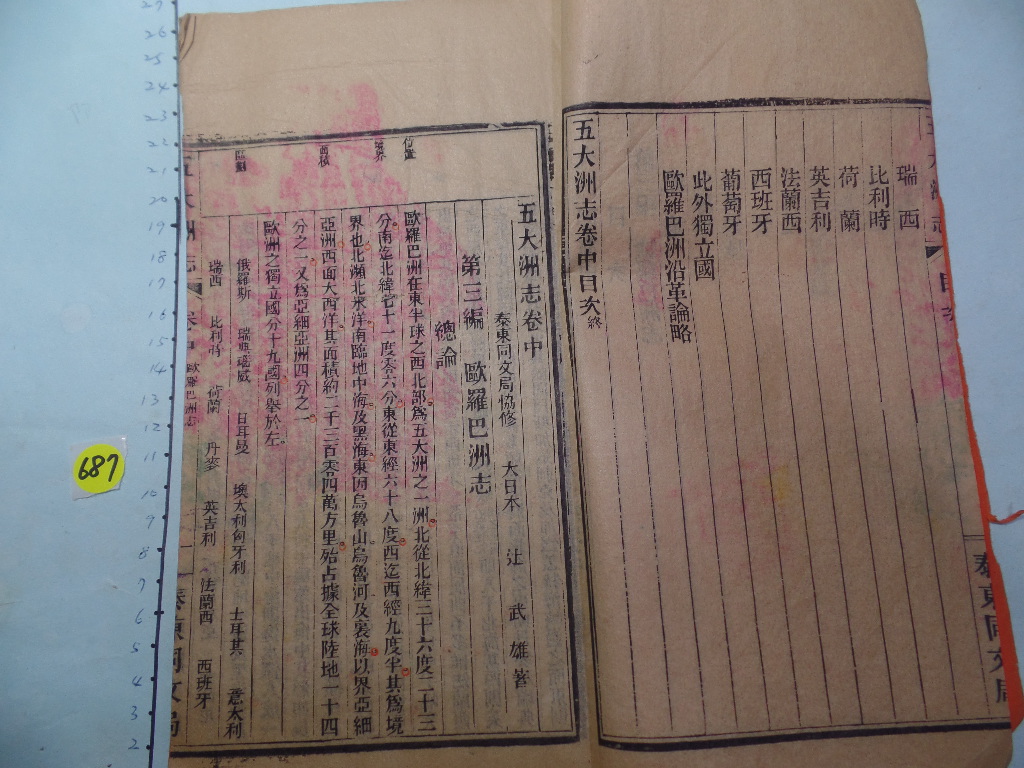 瑞西
比利時
荷蘭
英吉利
法蘭西
西班牙
葡萄牙
此外獨立國
歐羅巴洲沿革論略
五大洲志卷中目次終
泰東同文局
五大洲志卷中
泰東同文局協修 大日本 辻 武雄著
第三編 歐羅巴洲志
總論
位置
歐羅巴洲在東半球之西北部爲五大洲之一洲北從北緯三十六度二十三
分南迄北緯七十一度零六分東從東經六十八度西迄西經九度半其爲境
境界
界也北瀕北氷洋南臨地中海及黑海東因烏魯山烏魯河及裏海以界亞細
面積
亞洲西面大西洋其面積約二千三百零四萬方里殆占據全球陸地一十四
分之一又爲亞細亞洲四分之一
區劃
歐洲之獨立國分十九國列舉於左
俄羅斯 瑞典那威 日耳曼 墺太利匈牙利 土耳其 意大利
瑞西 比利時 荷蘭 丹麥 英吉利 法蘭西 西班牙
五大洲志 卷中 歐羅巴洲志 一 泰東同文局
687
27
26
25
24
23
22
21
20
19
18
17
16
15
14
13
12
11
10
9
8
7
6
5
4
3
2